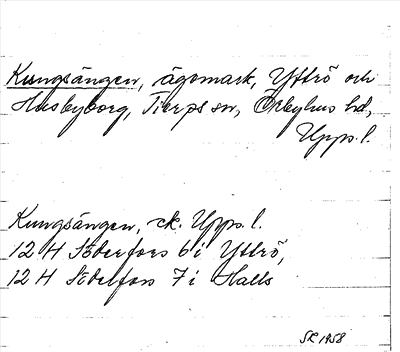 Kungsängen, ägomark, Yttrö och
Husbyborg, Tierps sn, Örbyhus hd,
Upps. l.
Kungsängen, ek. Upps. l.
12 H Söderfors 6 i Yttrö,
12 H Söderfors 7 i Halls
SR 1958